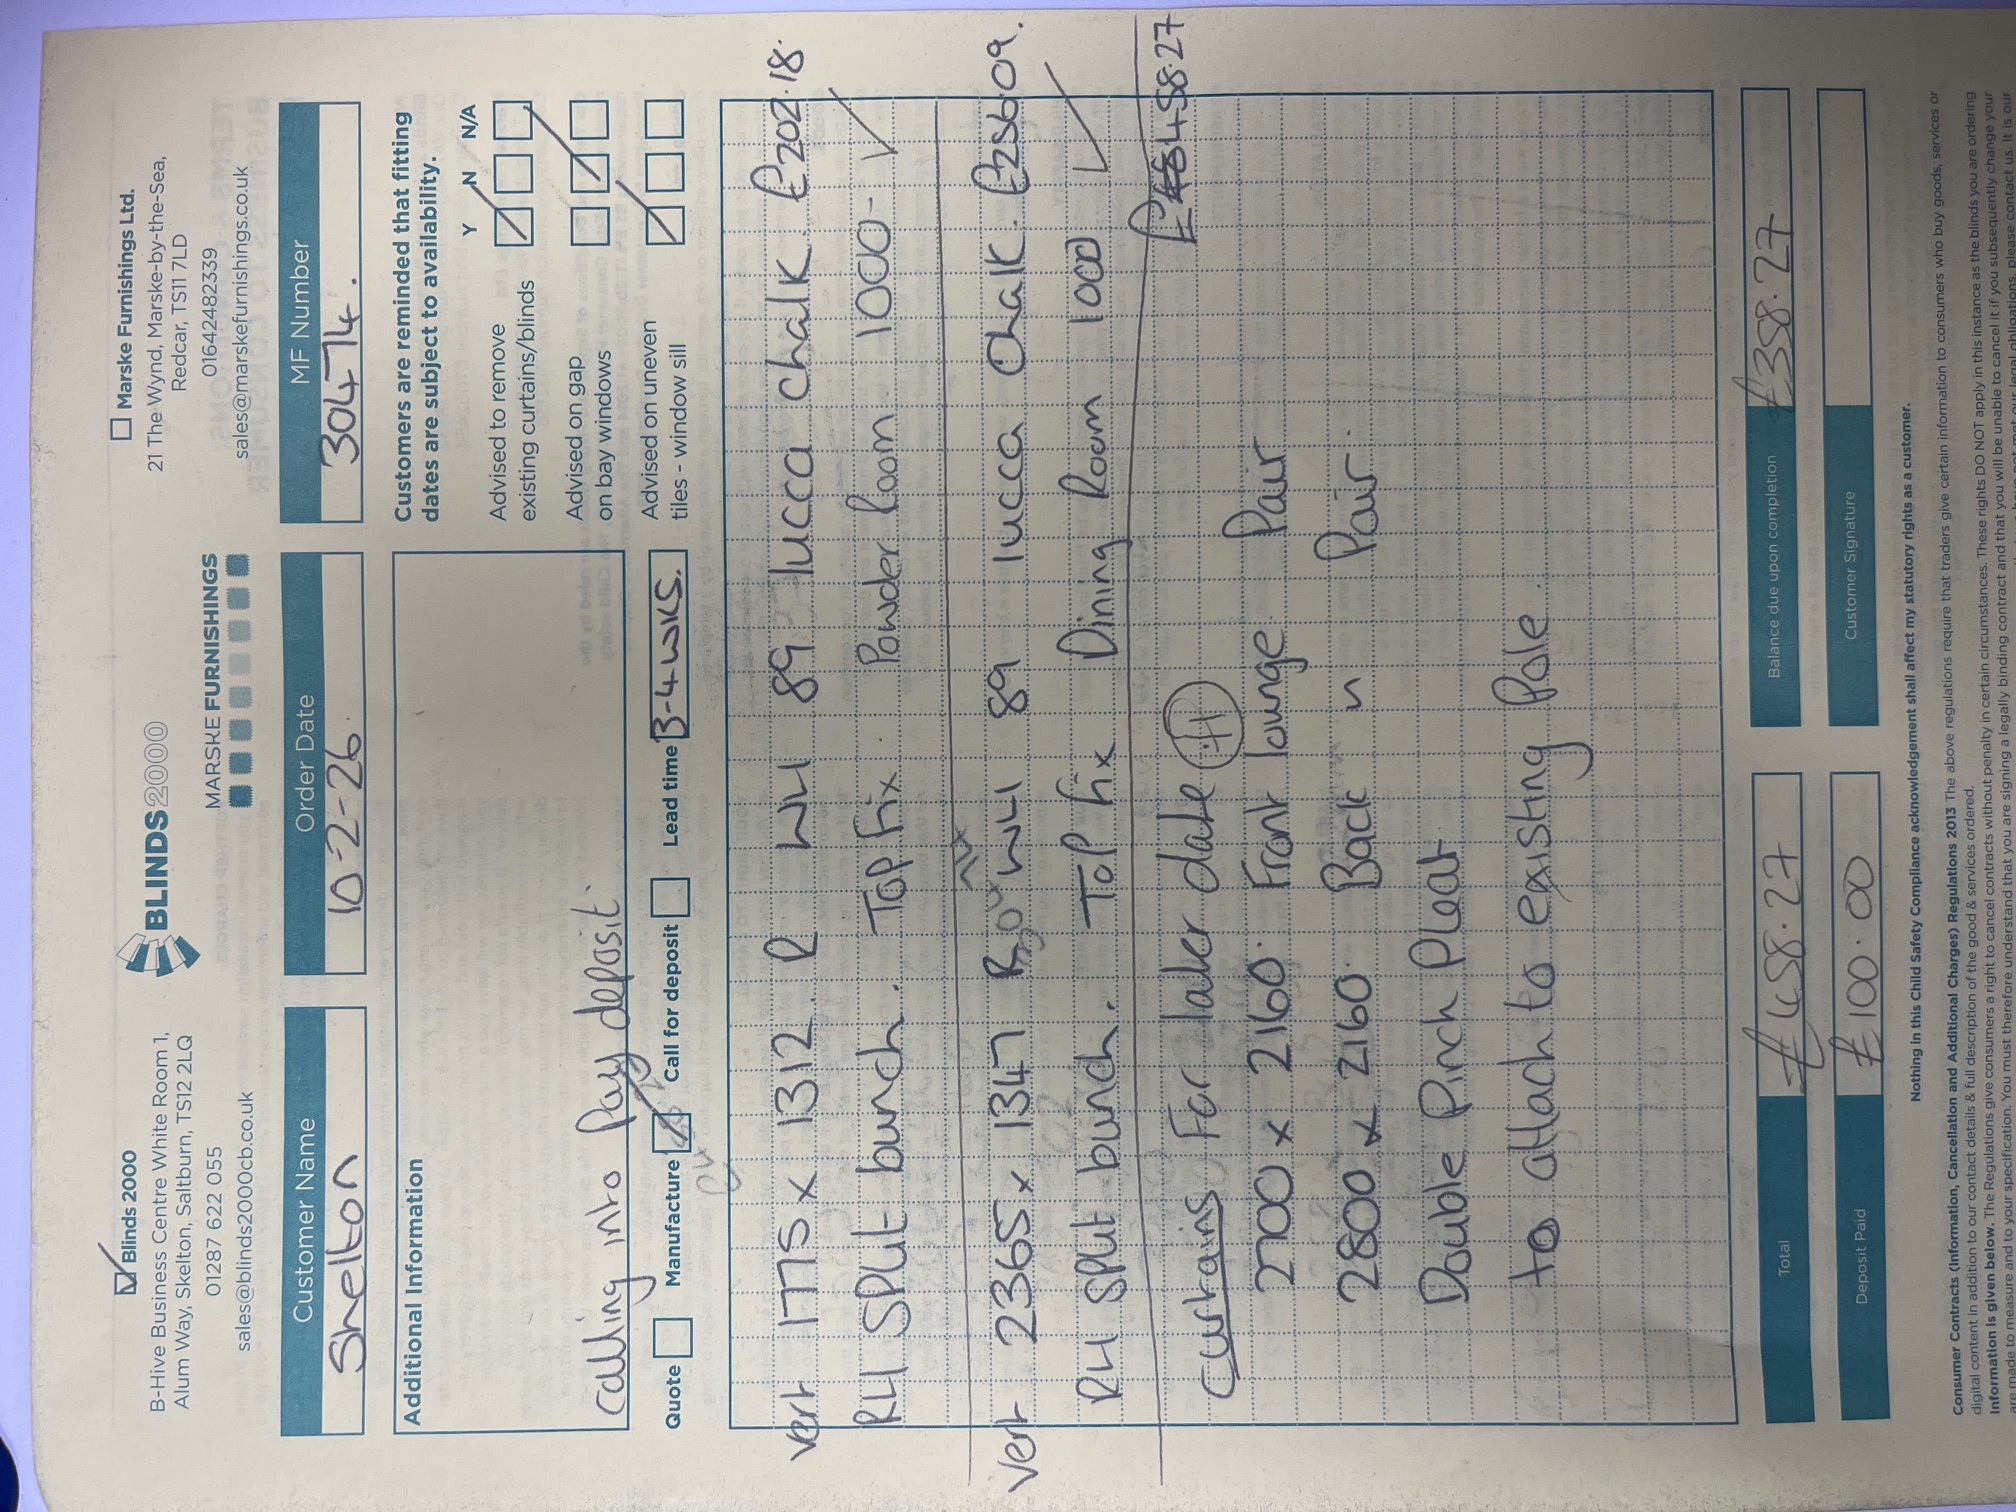 Blinds 2000
B-Hive Business Centre White Room 1,
Alum Way, Skelton, Saltburn, TS12 2LQ
01287 622 055
sales@blinds2000cb.co.uk
BLINDS2000
MARSKE FURNISHINGS
Marske Furnishings Ltd.
21 The Wynd, Marske-by-the-Sea,
Redcar, TS11 7LD
01642482339
sales@marskefurnishings.co.uk
Customer Name
Shelton
Order Date
10-2-26
MF Number
30474.
Additional Information
Calling into Pay deposit.
Customers are reminded that fitting
dates are subject to availability.
Y N N/A
Advised to remove
existing curtains/blinds
Advised on gap
on bay windows
Advised on uneven
tiles - window sill
Quote Manufacture Call for deposit Lead time 3-4 WKS.
Vert 1775 x 1312 R WH 89 lucca chalk £202.18.
RH SPLit bunch. Top Fix. Powder Room 1000
Vert 2365 x 1347 WH 89 lucca Chalk. £256.09.
RH Split bunch. ToP Fix Dining Room 1000
£458.27
Curtains For later date
2700 x 2160. Front lounge Pair
2800 x 2160. Back " Pair.
Double Pinch Pleat
to attach to existing Pole.
Total £458.27
Balance due upon completion £358.27
Deposit Paid £100.00
Customer Signature
Nothing in this Child Safety Compliance acknowledgement shall affect my statutory rights as a customer.
Consumer Contracts (Information, Cancellation and Additional Charges) Regulations 2013 The above regulations require that traders give certain information to consumers who buy goods, services or
digital content In addition to our contact details & full description of the good & services ordered.
Information is given below. The Regulations give consumers a right to cancel contracts without penalty in certain circumstances. These rights DO NOT apply in this instance as the blinds you are ordering
are made to measure and to your specification. You must therefore understand that you are signing a legally binding contract and that you will be unable to cancel it if you subsequently change your